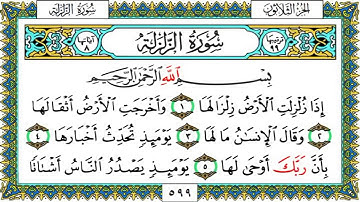 سُورَةُ الزَّلْزَلَةِ الجُزءُ الثَّلَاثُونَ
آياتها ٨ سُورَةُ الزَّلْزَلَةِ ترتيبها ٩٩
بِسْمِ اللَّهِ الرَّحْمَٰنِ الرَّحِيمِ
إِذَا زُلْزِلَتِ الْأَرْضُ زِلْزَالَهَا ١ وَأَخْرَجَتِ الْأَرْضُ أَثْقَالَهَا
٢ وَقَالَ الْإِنسَانُ مَا لَهَا ٣ يَوْمَئِذٍ تُحَدِّثُ أَخْبَارَهَا ٤
بِأَنَّ رَبَّكَ أَوْحَىٰ لَهَا ٥ يَوْمَئِذٍ يَصْدُرُ النَّاسُ أَشْتَاتًا
٥٩٩